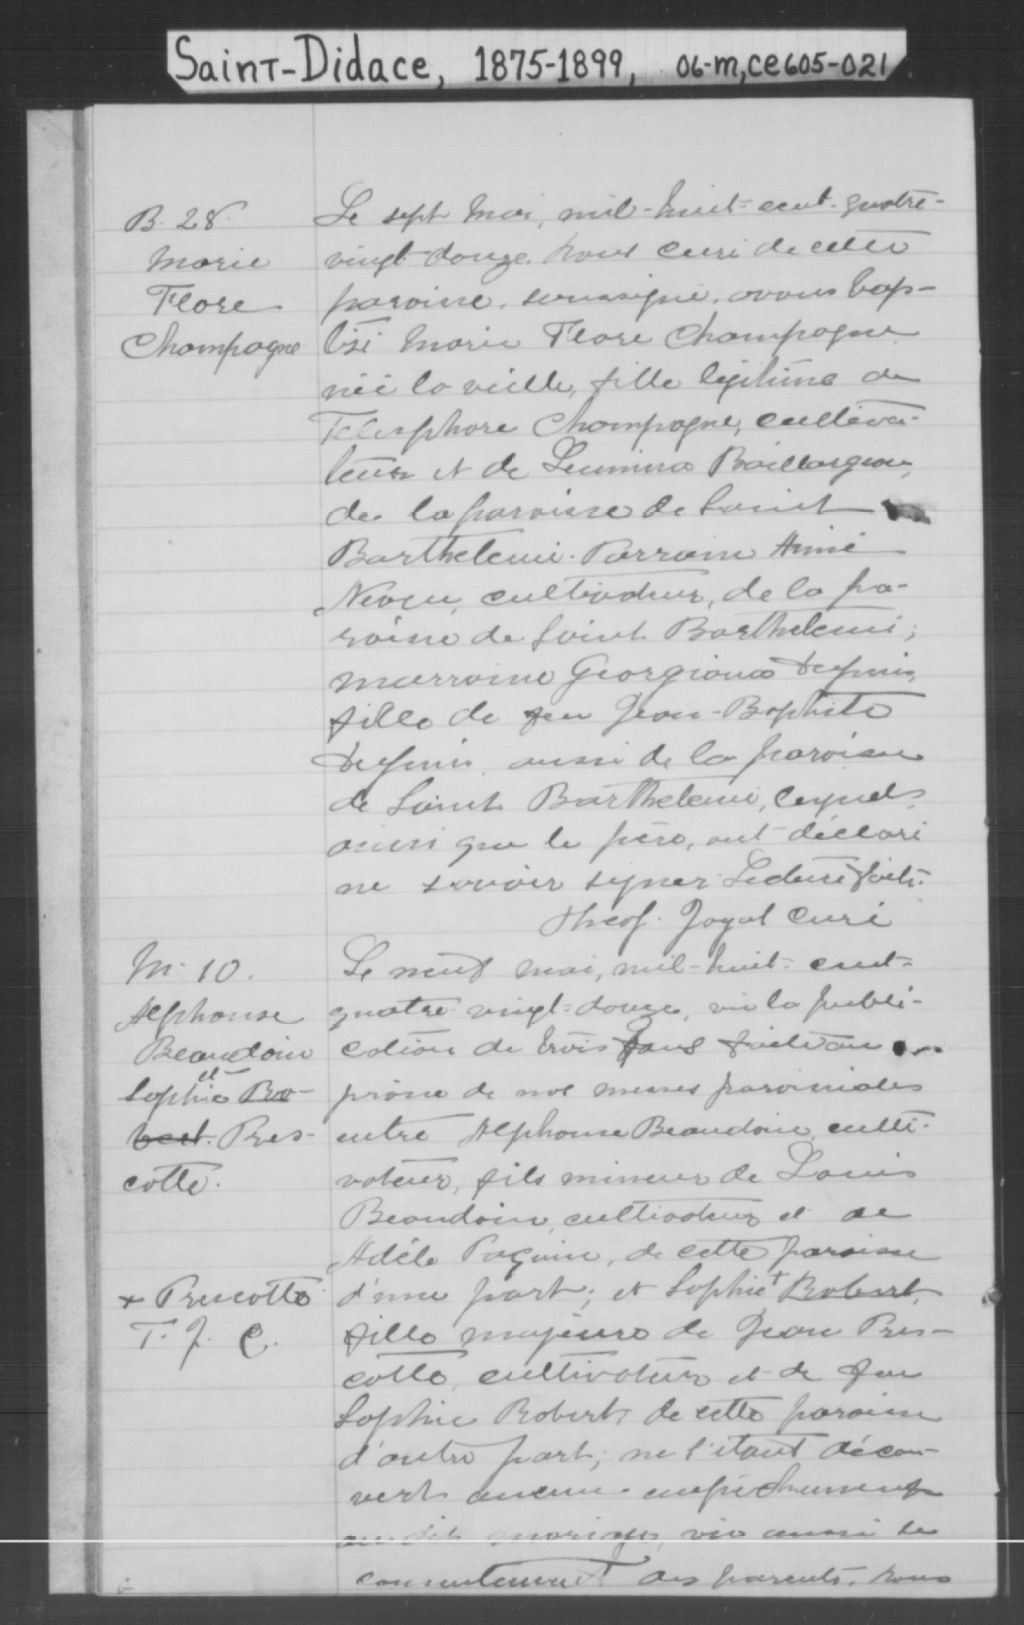 Saint-Didace, 1875-1899, 06-M,CE605-021
B. 28.
Marie
Flore
Champagne
Le sept mai, mil-huit-cent-quatre-
vingt-douze, nous curé de cette
paroisse, soussigné, avons bap-
tisé Marie Flore Champagne
née la veille, fille légitime de
Télesphore Champagne, cultiva-
teur et de Baillargeon,
de la paroisse de Saint
Barthelemi. Parrain Aimé
Neveu, cultivateur, de la pa-
roisse de Saint Barthelemi;
marraine Georgiana
fille de feu Jean-Baptiste
aussi de la paroisse
de Saint Barthelemi, lesquels
ainsi que le père, ont déclaré
ne savoir signer. Lecture faite.
Théop. Joyal Curé
M. 10.
Alphonse
Beaudoin
et
Sophie Ro-
bert. Pres-
cotte.
Le neuf mai, mil-huit-cent-
quatre-vingt-douze, vu la publi-
cation de trois bans faite au
prône de nos messes paroissiales
entre Alphonse Beaudoin, culti-
vateur, fils mineur de Louis
Beaudoin, cultivateur et de
Adèle Paquin, de cette paroisse
d'une part; et Sophie + Robert,
+ Prescotte
T. J. C.
fille majeure de Jean Pres-
cotte, cultivateur et de feu
Sophie Robert, de cette paroisse
d'autre part; ne s'étant décou-
vert aucun empêchement
au dit mariage, vu aussi le
consentement des parents, nous